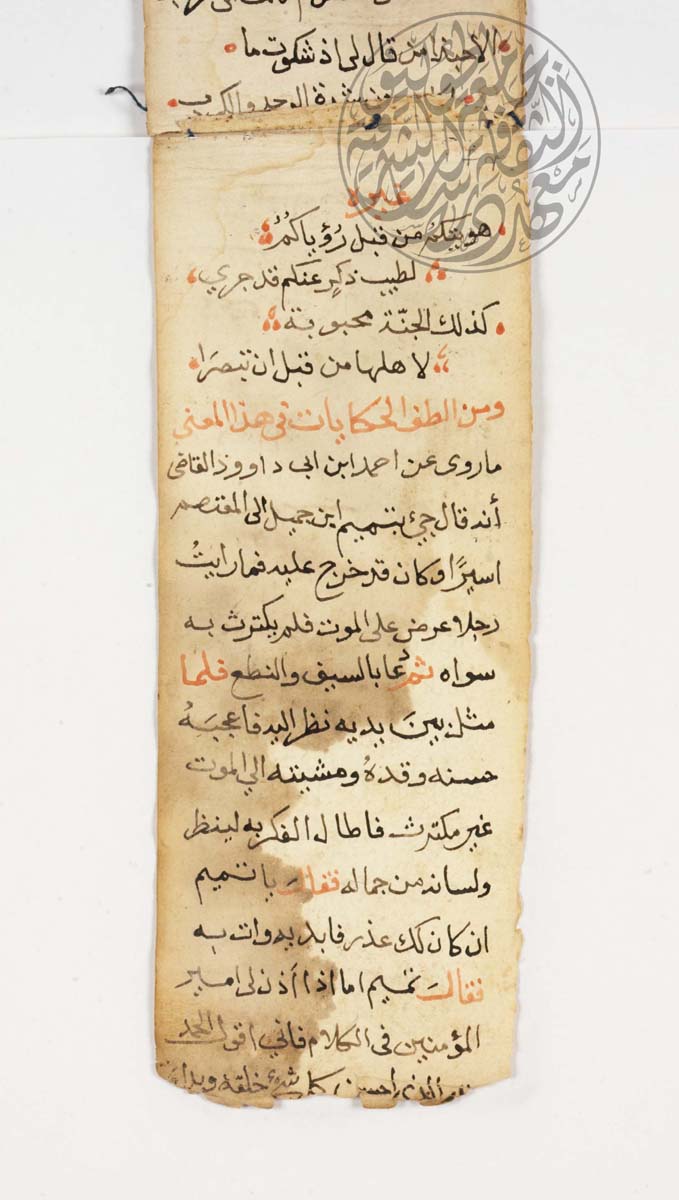 الاحبذا من قال لي اذ شكوت ما
الوجد والكرب
غيره
هويتكم من قبل رؤياكم
لطيب ذكر عنكم قد جري
كذلك الجنّة محبوبة
لاهلها من قبل ان تبصرا
ومن الطف الحكايات في هذا المعني
ماروى عن احمد ابن ابى داوود القاضى
أنه قال جيئ بتميم ابن جميل الى المعتصم
اسيرًا وكان قد خرج عليه فما رايتُ
رجلا عرض على الموت فلم يكترث به
سواه ثم دعا بالسيف والنطع فلما
مثل بينَ يديه نظر اليه فاعجبَهُ
حسنه وقدهُ ومشيته الي الموت
غير مكترث فاطال الفكر به لينظر
ولسانه من جماله فقالَ يا تميم
ان كان لك عذر فابديه وات به
فقالَ تميم اما اذا أذن لى امير
المؤمنين فى الكلام فاني اقول الحمد
الذي احسن كل شيء خلقه وبدا